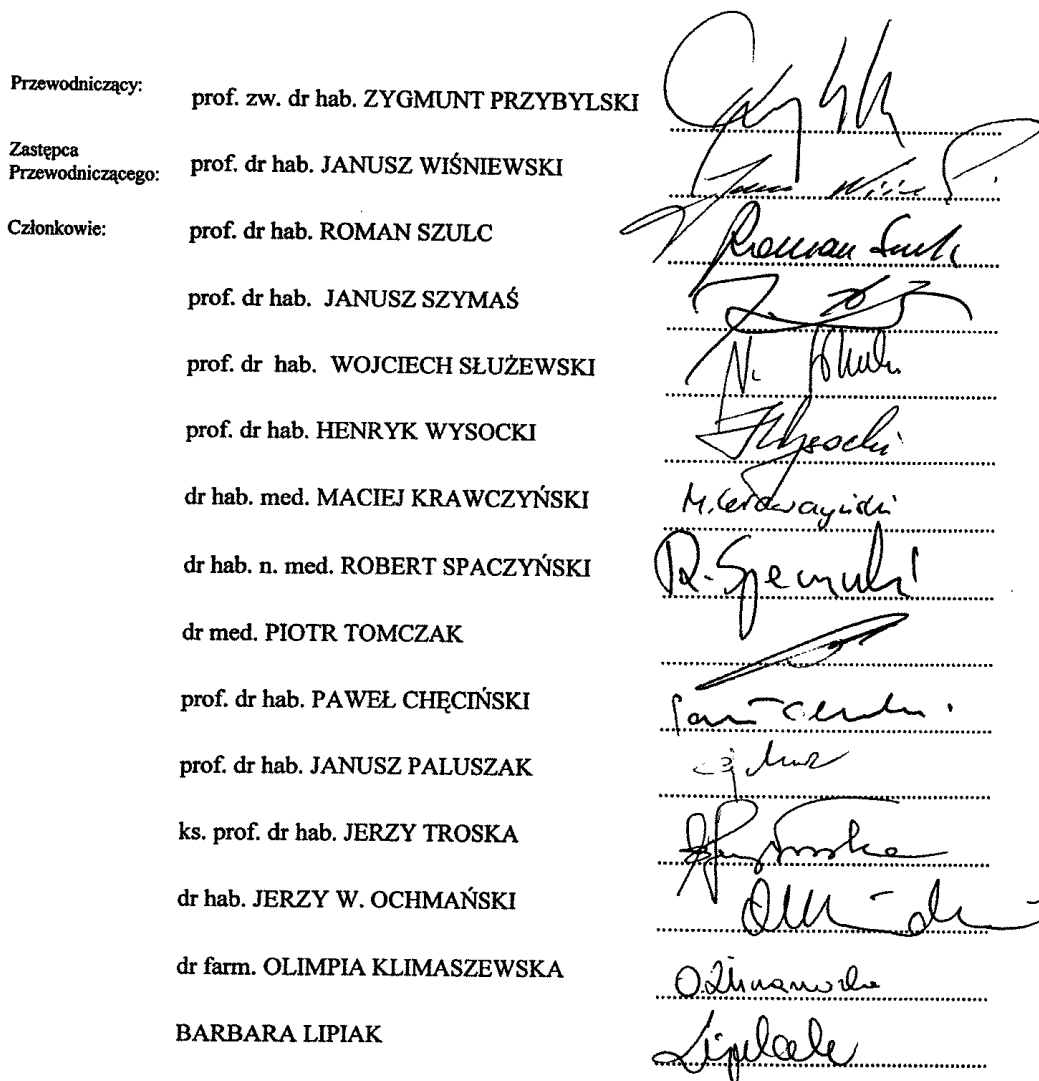 Przewodniczący: prof. zw. dr hab. ZYGMUNT PRZYBYLSKI
Zastępca
Przewodniczącego: prof. dr hab. JANUSZ WIŚNIEWSKI
Członkowie: prof. dr hab. ROMAN SZULC Roman Szulc
prof. dr hab. JANUSZ SZYMAŚ
prof. dr hab. WOJCIECH SŁUŻEWSKI
prof. dr hab. HENRYK WYSOCKI HWysocki
dr hab. med. MACIEJ KRAWCZYŃSKI M. Krawczyński
dr hab. n. med. ROBERT SPACZYŃSKI R. Spaczyński
dr med. PIOTR TOMCZAK
prof. dr hab. PAWEŁ CHĘCIŃSKI
prof. dr hab. JANUSZ PALUSZAK
ks. prof. dr hab. JERZY TROSKA
dr hab. JERZY W. OCHMAŃSKI
dr farm. OLIMPIA KLIMASZEWSKA
BARBARA LIPIAK Lipiak